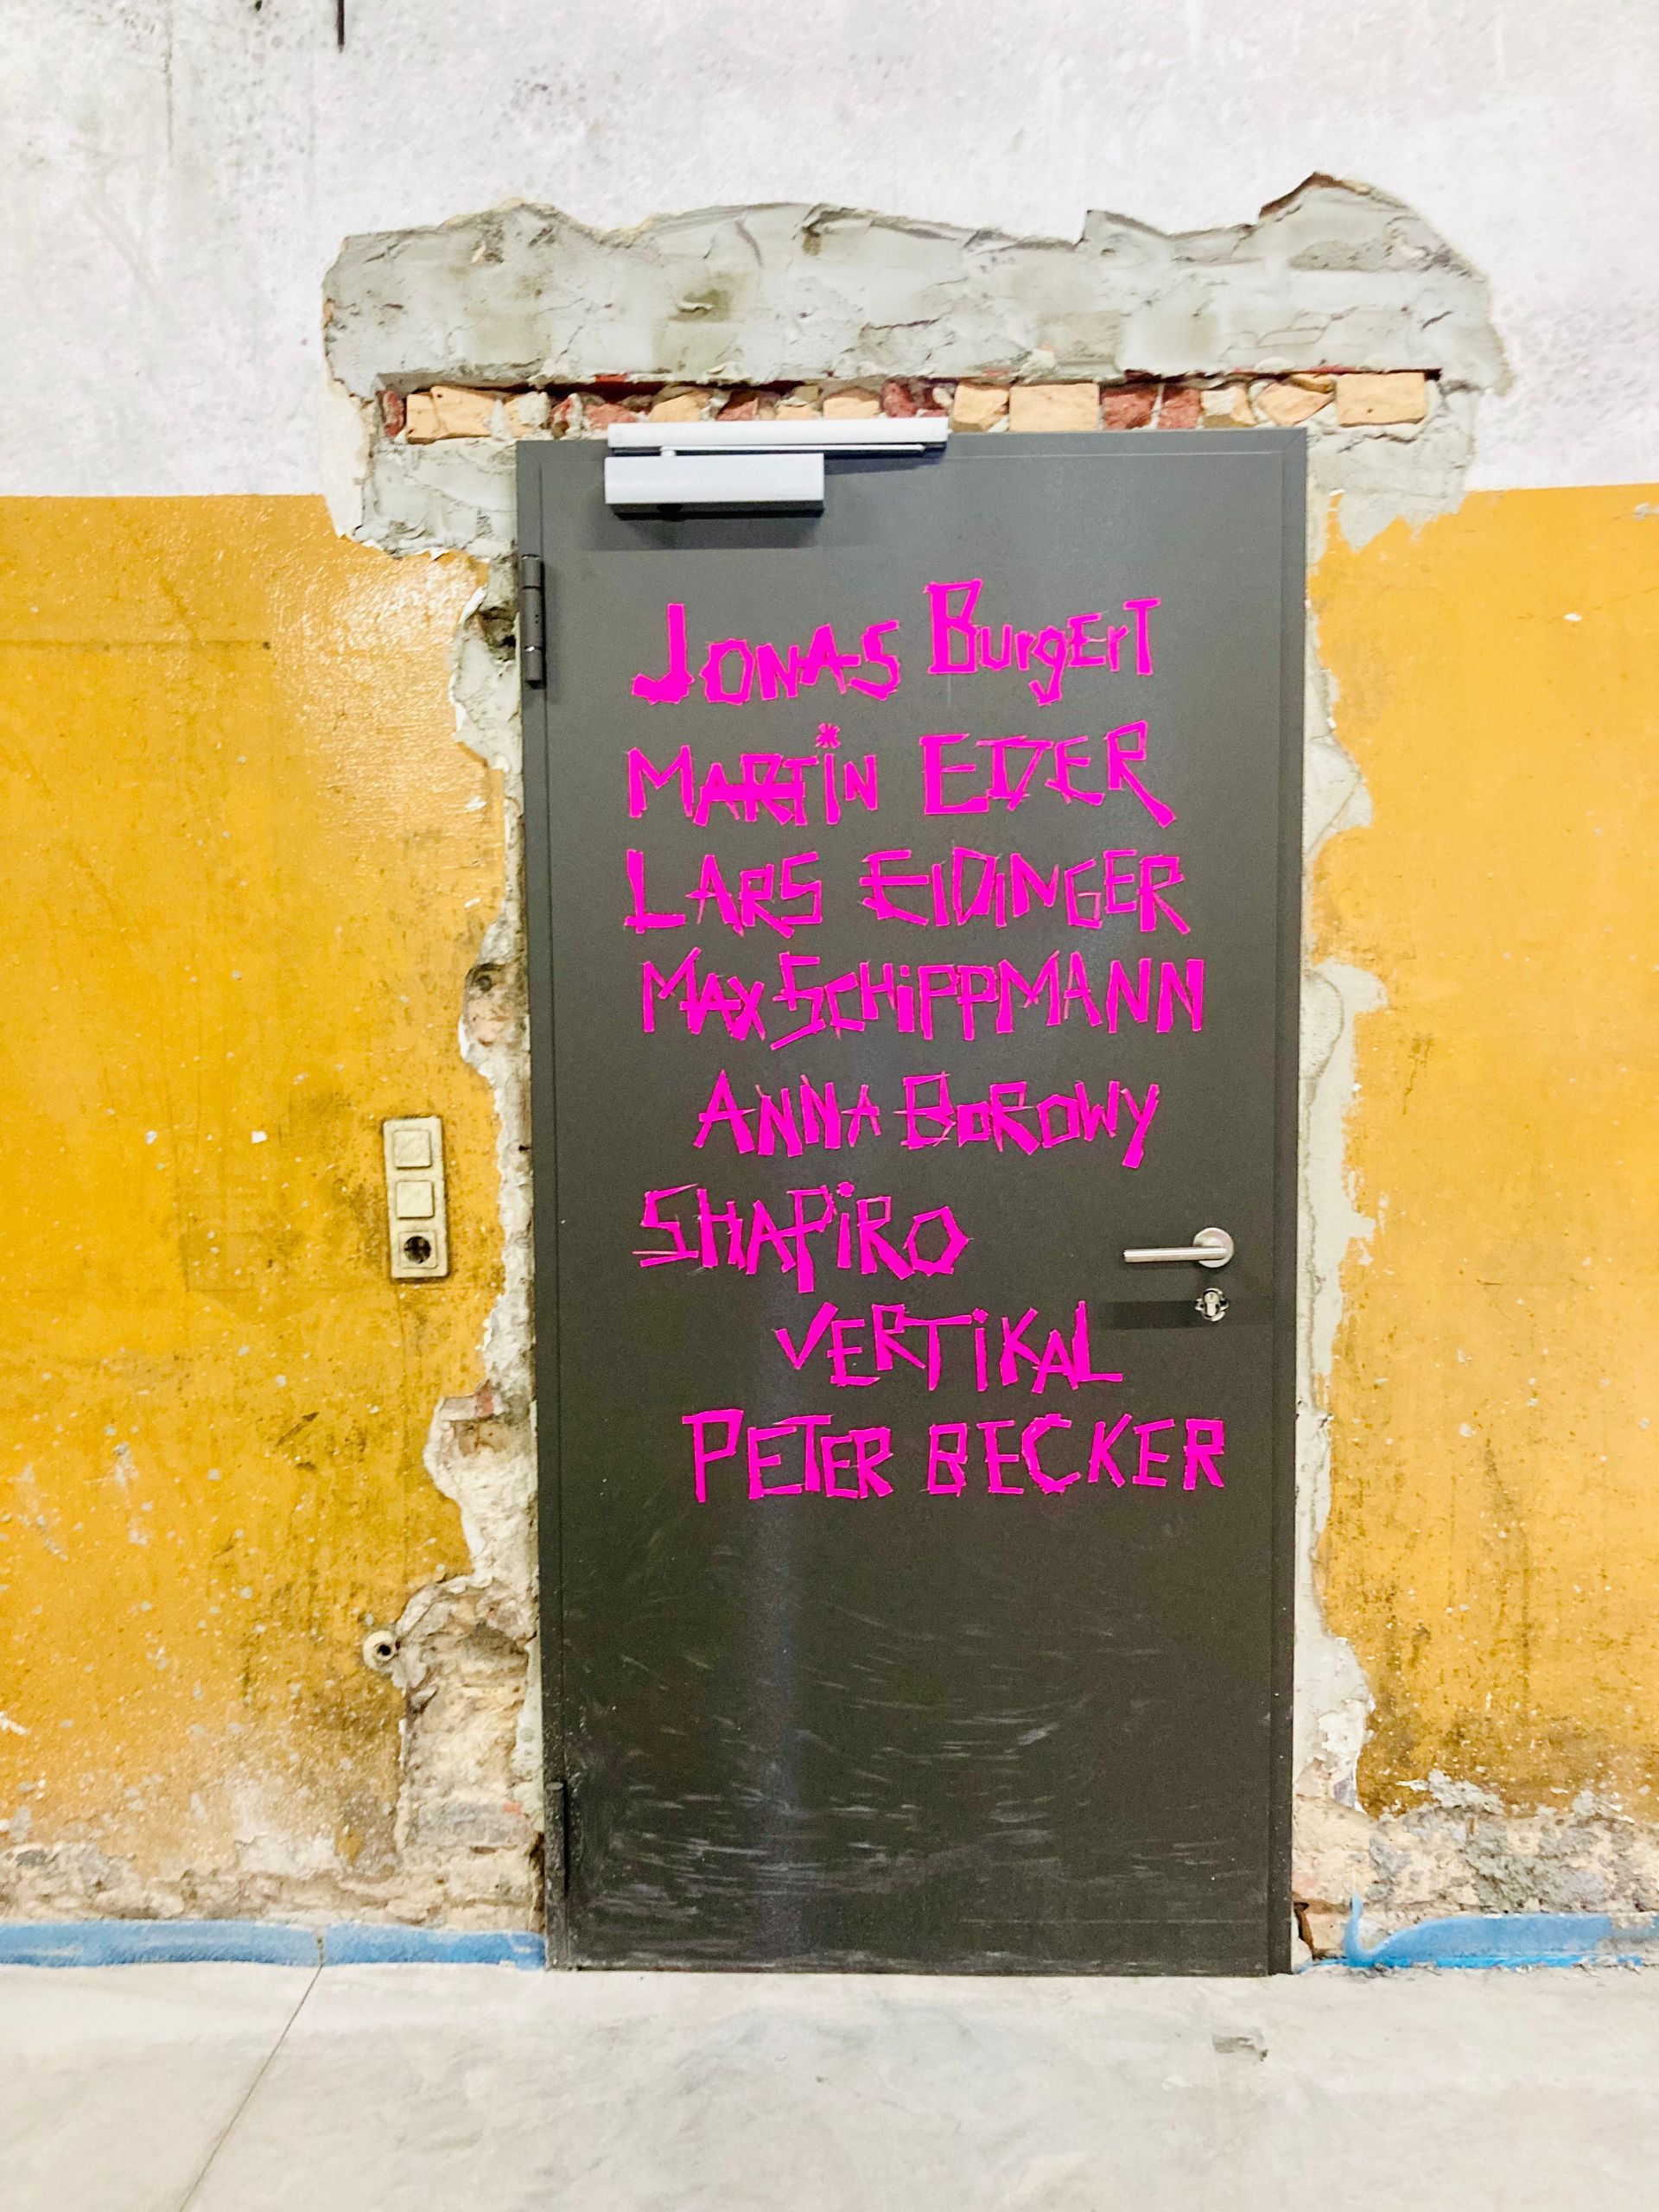 JONAS BurgErT
MARTiN EDER
LARS EIDINGER
MAX SCHiPPMANN
ANNA BOROWY
SHAPiRO
VERTiKAL
PETER BECKER